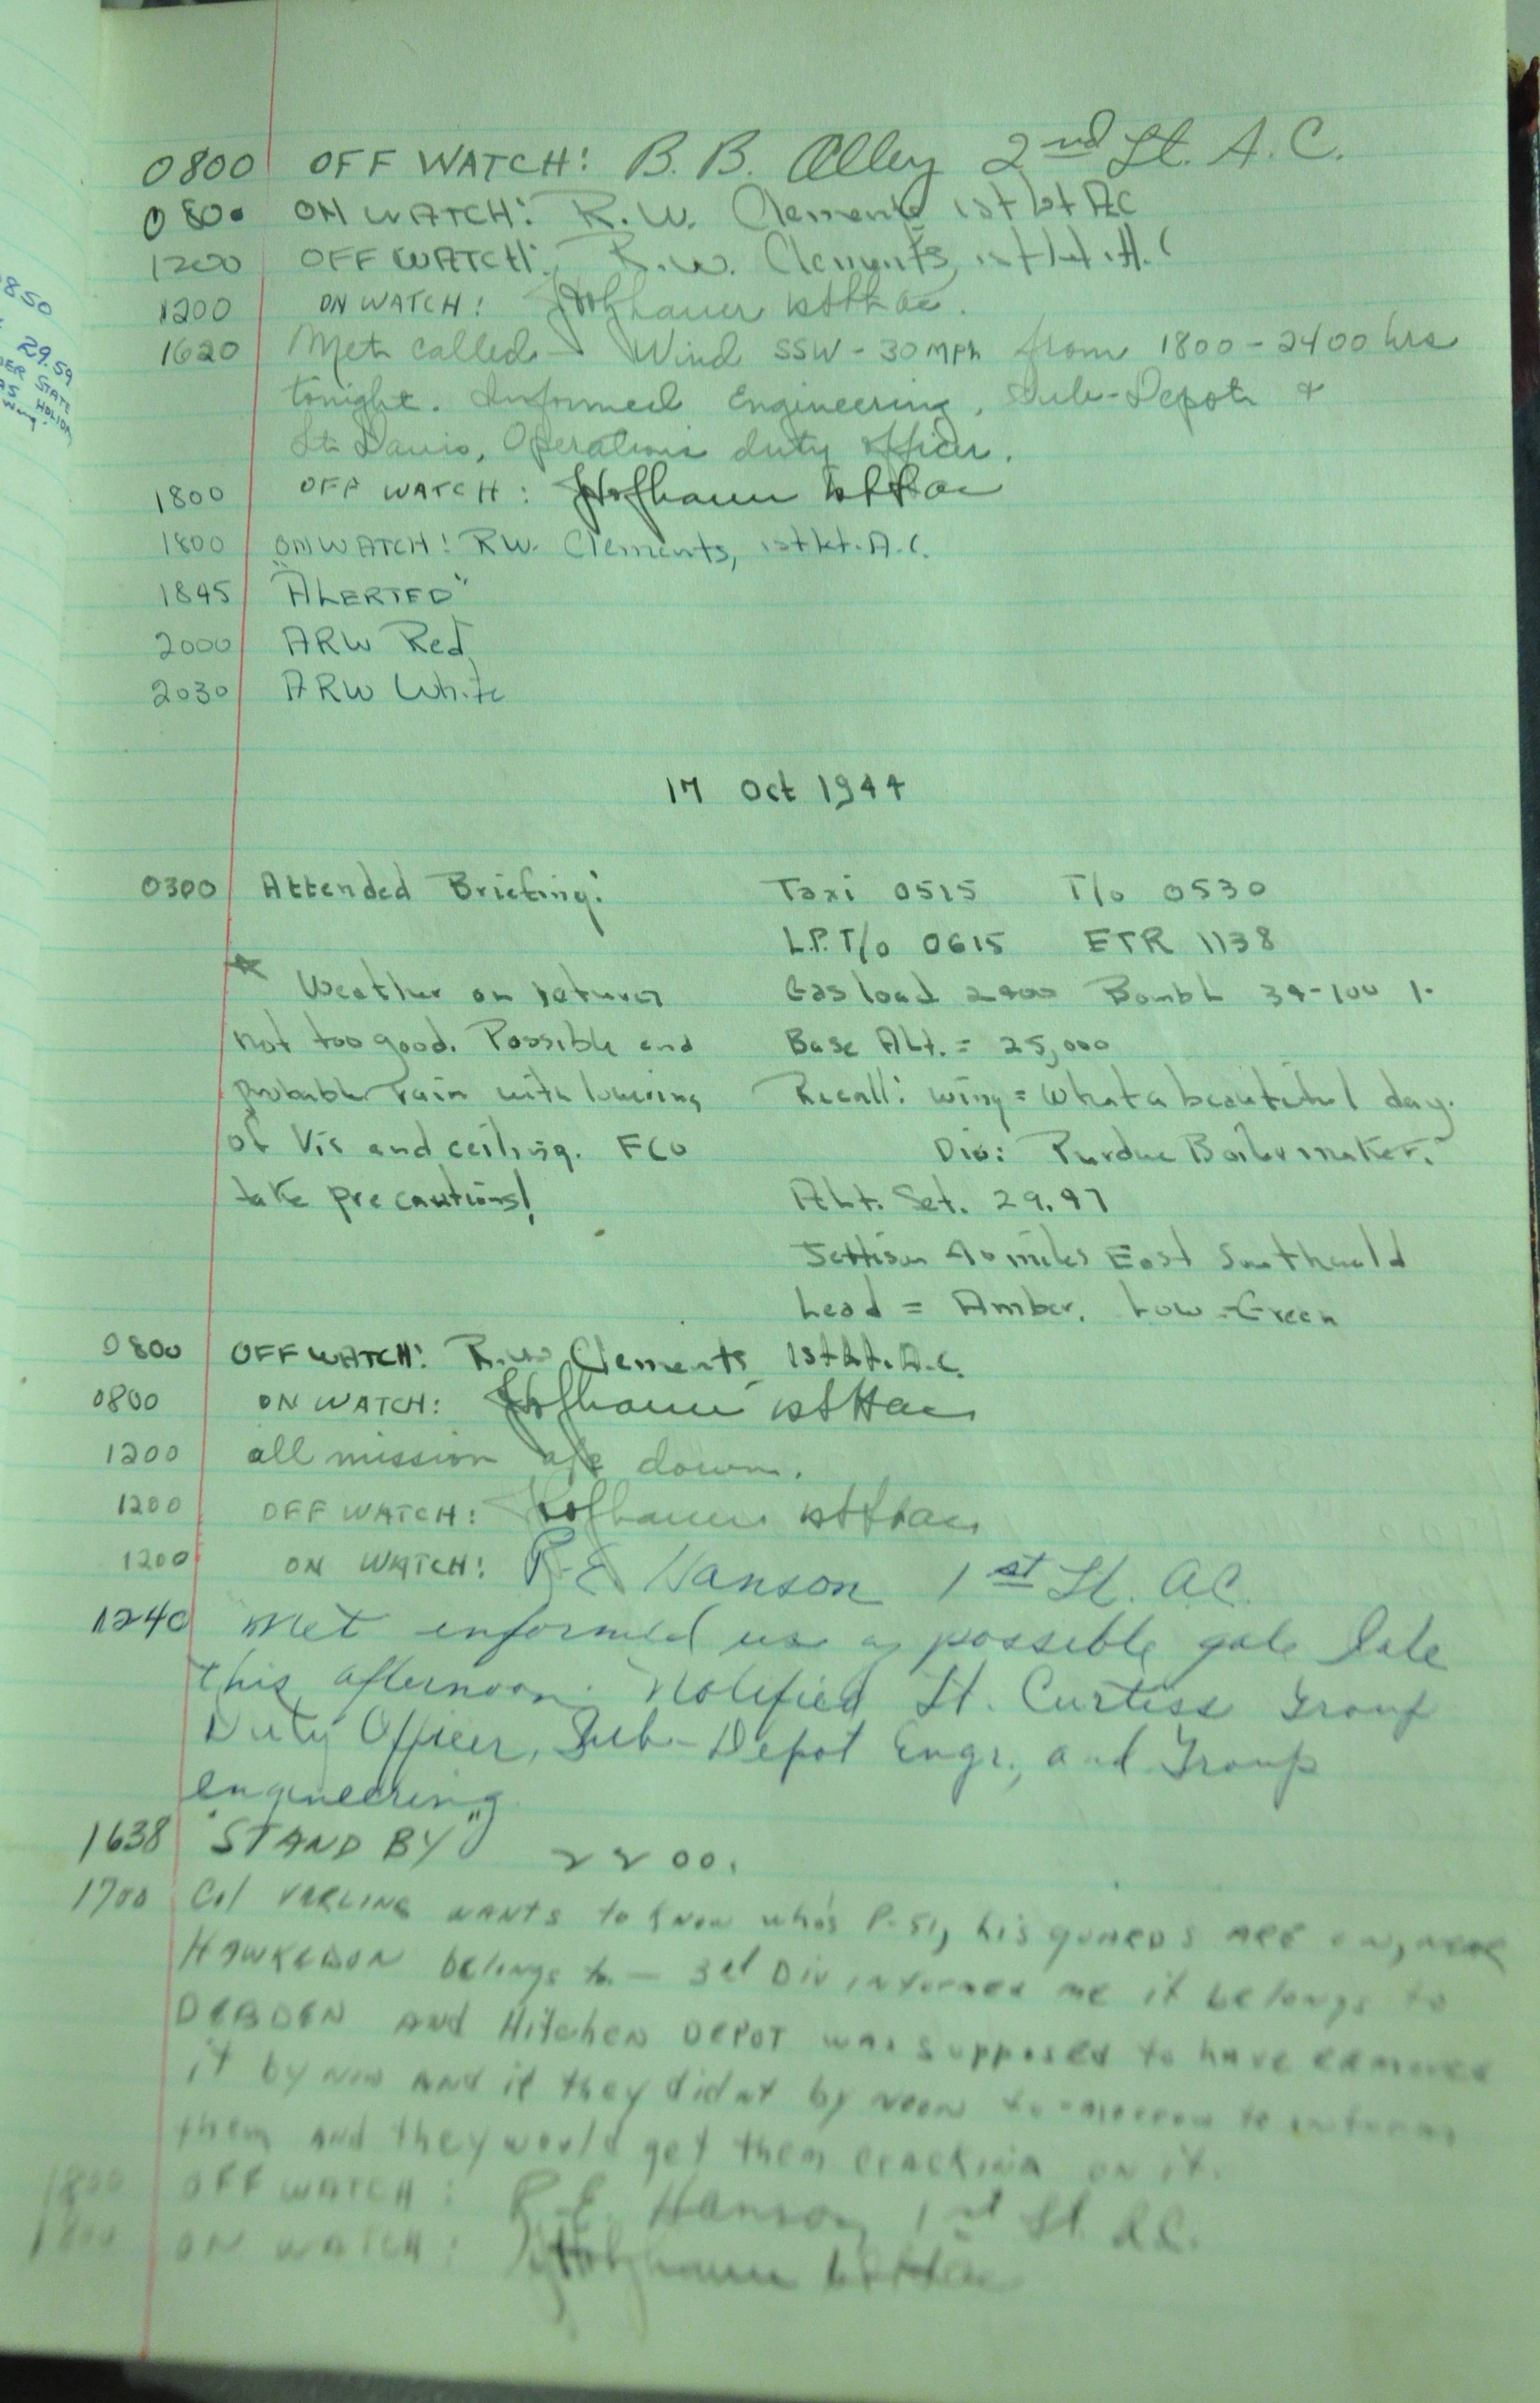 0800 OFF WATCH: B. B. Alley 2nd Lt. A. C.
0800 ON WATCH: R. W. Clements 1st Lt AC
1200 OFF WATCH: R. W. Clements, 1st Lt. A. C
1200 ON WATCH: 1st Lt ac.
1620 Met called - Wind SSW - 30 MPH from 1800 - 2400 hrs
tonight. Informed Engineering, Sub-Depot &
Lt Davis, Operations duty officer.
1800 OFF WATCH: 1st Lt ac
1800 ON WATCH! RW. Clements, 1st Lt. A.C.
1845 "ALERTED"
2000 ARW Red
2030 ARW White
17 Oct 1944
0300 Attended Briefing: Taxi 0515 T/o 0530
L.P. T/o 0615 ETR 1138
Weather on return Gas load 2400 Bomb L 34-100
not too good. Possible and Base Alt. = 25,000
probable rain with lowering Recall: Wing = What a beautiful day.
of Vis and ceiling. FCO Div: Purdue Boilermaker.
take precautions! Alt. Set. 29.97
Jettison 40 miles East Southwold
Lead = Amber. Low - Green
0800 OFF WATCH: R.W. Clements 1st Lt. A.C.
0800 ON WATCH: 1st Lt ac
1200 all mission a/c down.
1200 OFF WATCH: 1st Lt ac
1200 ON WATCH: R. E. Hanson 1st Lt. AC.
1240 Met informed us of possible gale late
this afternoon. Notified Lt. Curtiss Group
Duty Officer, Sub-Depot Engr., and Group
engineering
1638 "STAND BY" 2200.
1700 Col wants to know who's P-51, his guards are on, near
belongs to - 3rd Div informed me it belongs to
DEBDEN AND Hitchen DEPOT was supposed to have removed
it by now AND if they didnt by noon to-morrow to inform
them AND they would get them cracking on it.
1800 OFF WATCH: R. E. Hanson 1st Lt. AC.
1800 ON WATCH: 1st Lt ac
0850
29.59
STATE
HOLIDAY